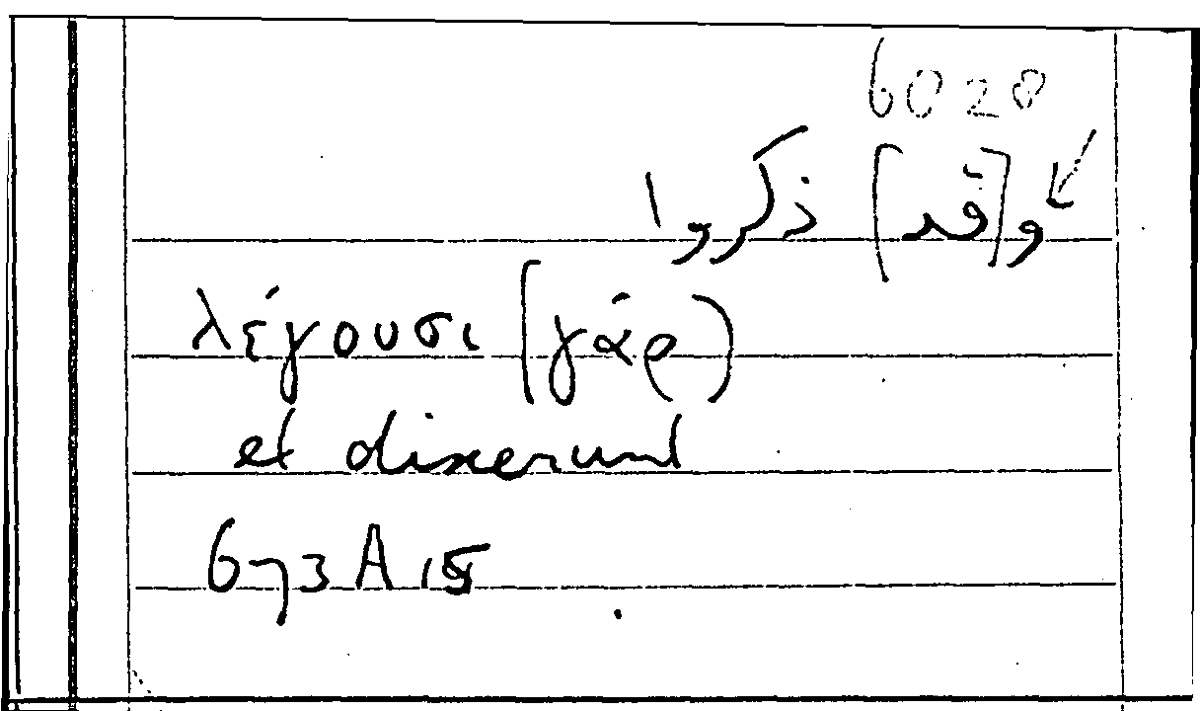 6028
و[قد] ذكروا
λέγουσι [γάρ)
et dixerunt
673A15